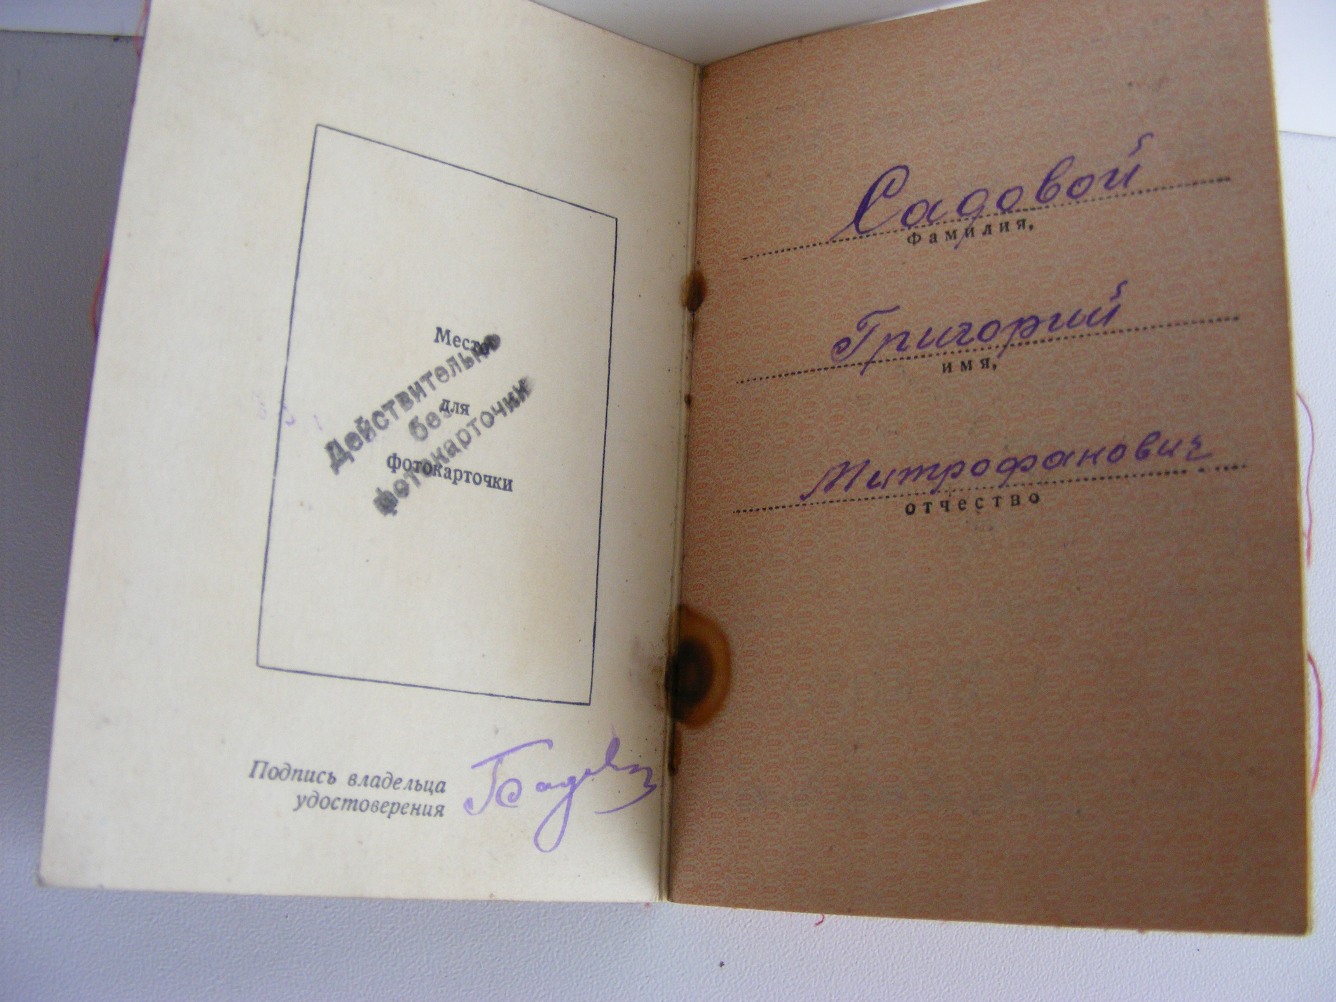 Место
для
фотокарточки
Действительно
без
фотокарточки
Подпись владельца
удостоверения
Садовой
Фамилия,
Григорий
имя,
Митрофанович
отчество